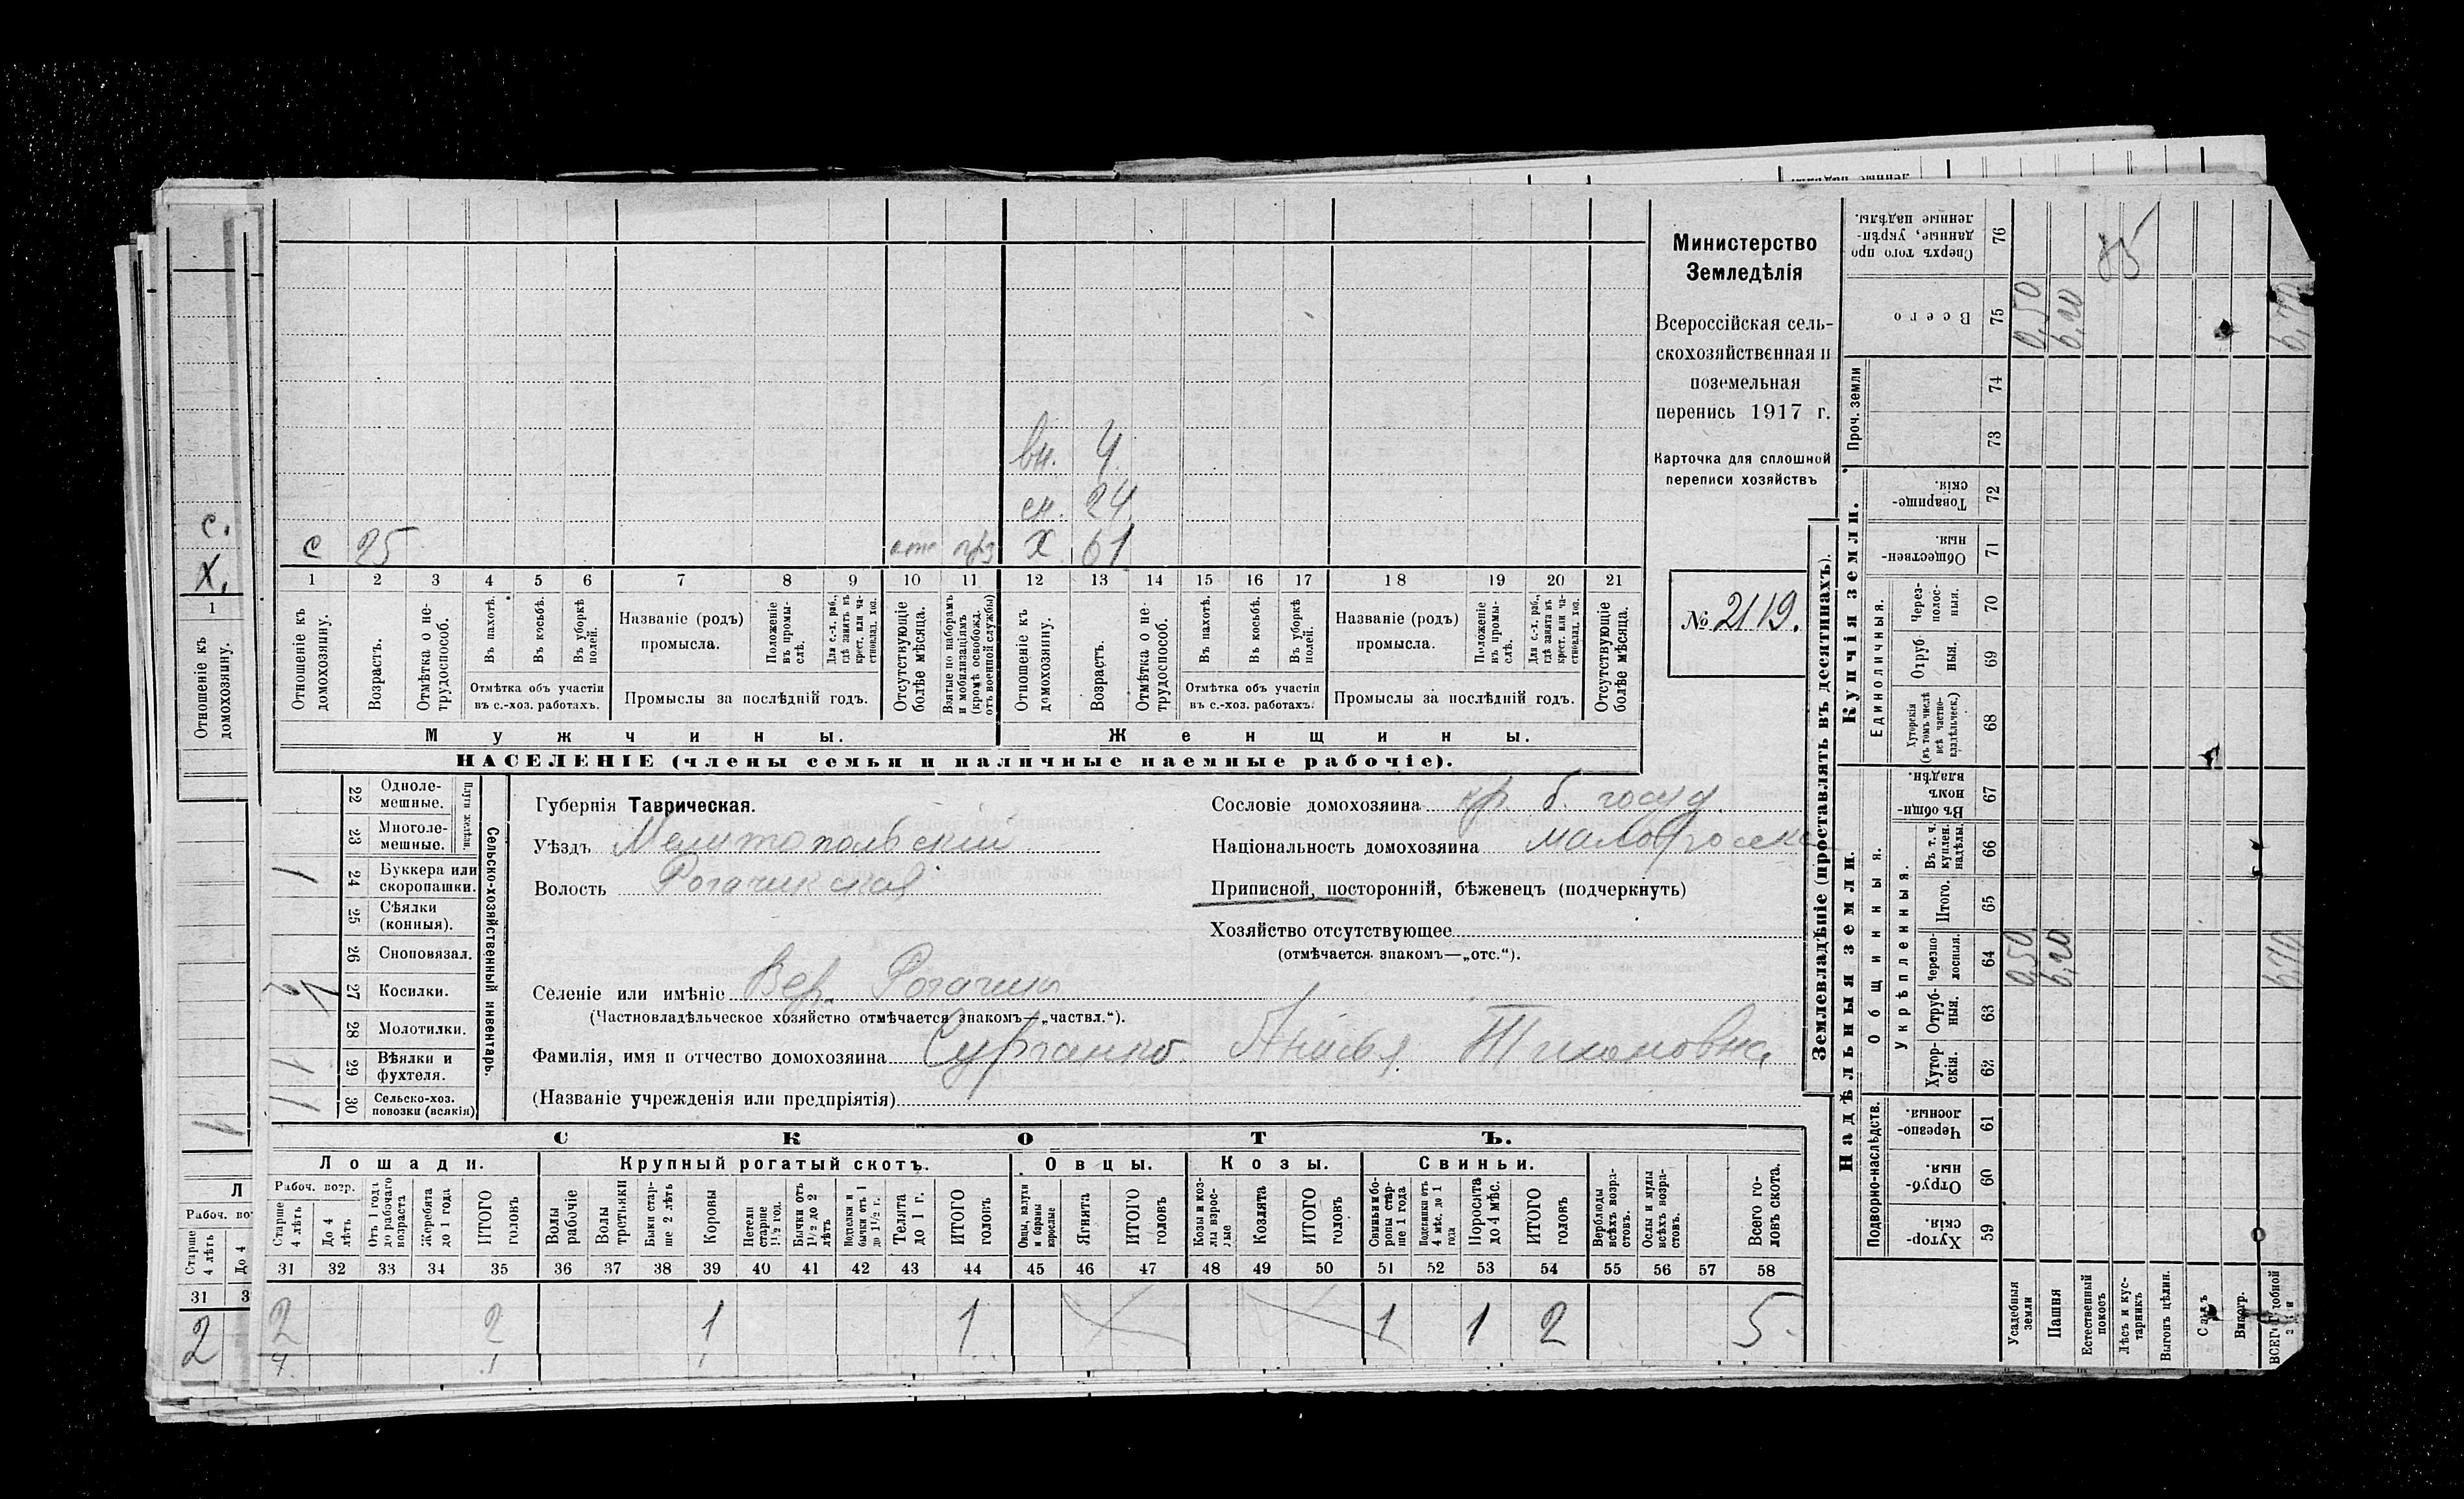 вн. 4.
сн. 24.
с 25 отс прз х 61
1 2 3 4 5 6 7 8 9 10 11 12 13 14 15 16 17 18 19 20 21
Отношеніе къ домохозяину.
Возрастъ.
Отмѣтка о не-
трудоспособ.
Въ пахотѣ.
Въ косьбѣ.
Въ уборкѣ
полей.
Отмѣтка объ участіи
въ с.-хоз. работахъ.
Названіе (родъ)
промысла.
Положеніе
въ промы-
слѣ.
Для с.-х. раб.,
гдѣ занятъ въ
крест. или ча-
стновлад. хоз.
Промыслы за послѣдній годъ.
Отсутствующіе
болѣе мѣсяца.
Взятые по наборамъ
и мобилизаціямъ
(кромѣ освобожд.
отъ военной службы)
Отношеніе къ
домохозяину.
Возрастъ.
Отмѣтка о не-
трудоспособ.
Въ пахотѣ.
Въ косьбѣ.
Въ уборкѣ
полей.
Отмѣтка объ участіи
въ с.-хоз. работахъ.
Названіе (родъ)
промысла.
Положеніе
въ промы-
слѣ.
Для с.-х. раб.,
гдѣ занята въ
крест. или ча-
стновлад. хоз.
Промыслы за послѣдній годъ.
Отсутствующіе
болѣе мѣсяца.
Мужчины. Женщины.
НАСЕЛЕНІЕ (члены семьи и наличные наемные рабочіе).
Министерство
Земледѣлія
Всероссійская сель-
скохозяйственная и
поземельная
перепись 1917 г.
Карточка для сплошной
переписи хозяйствъ
№ 2119.
Сельско-хозяйственный инвентарь.
Плуги желѣзн.
22 Одноле-
мешные.
23 Многоле-
мешные.
1 24 Буккера или
скоропашки.
25 Сѣялки
(конныя).
26 Сноповязал.
27 Косилки.
28 Молотилки.
1 29 Вѣялки и
фухтеля.
1 30 Сельско-хоз.
повозки (всякія)
Губернія Таврическая.
Уѣздъ Мелитопольскій
Волость Рогачикская
Селеніе или имѣніе Вер. Рогачик
(Частновладѣльческое хозяйство отмѣчается знакомъ—„частвл.“).
Фамилія, имя и отчество домохозяина Сурганко Анисья Тихоновна
(Названіе учрежденія или предпріятія)
Сословіе домохозяина кр б. госуд
Національность домохозяина малоросска
Приписной, посторонній, бѣженецъ (подчеркнуть)
Хозяйство отсутствующее
(отмѣчается знакомъ—„отс.“).
СКОТЪ.
Лошади. Крупный рогатый скотъ. Овцы. Козы. Свиньи.
Рабоч. возр.
Старше
4 лѣтъ
До 4
лѣтъ
Отъ 1 года
до рабочаго
возраста
Жеребята
до 1 года
ИТОГО
головъ
Волы
рабочіе
Волы
третьяки
Быки стар-
ше 2 лѣтъ
Коровы
Нетели
старше
1½ год.
Бычки отъ
1½ до 2
лѣтъ
Подтелки и
бычки отъ 1
до 1½ г.
Телята
до 1 г.
ИТОГО
головъ
Овцы, валухи
и бараны
взрослые
Ягнята
ИТОГО
головъ
Козы и коз-
лы взрос-
лые
Козлята
ИТОГО
головъ
Свиньи и бо-
ровы стар-
ше 1 года
Подсвинки отъ
4 мѣс. до 1
года
Поросята
до 4 мѣс.
ИТОГО
головъ
Верблюды
всѣхъ возра-
стовъ.
Ослы и мулы
всѣхъ возра-
стовъ.
Всего го-
ловъ скота.
31 32 33 34 35 36 37 38 39 40 41 42 43 44 45 46 47 48 49 50 51 52 53 54 55 56 57 58
2 2 1 1 1 1 2 5
Землевладѣніе (проставлять въ десятинахъ).
Надѣльныя земли. Купчія земли. Проч. земли
Подворно-наслѣдств.
Общинныя.
Укрѣпленныя.
Единоличныя.
Хутор-
скія. 59
Отруб-
ныя 60
Черезпо-
лосныя. 61
Хутор-
скія. 62
Отруб-
ныя. 63
Черезпо-
лосныя. 64
Итого. 65
Въ т. ч.
куплен.
надѣлы. 66
Въ общин-
номъ
владѣн. 67
Хуторскія
(въ томъ числѣ
всѣ частно-
владѣльческ.) 68
Отруб-
ныя. 69
Через-
полос-
ныя. 70
Обществен-
ныя. 71
Товарище-
скія. 72
73
74
Всего 75
Сверхъ того про-
данные, укрѣп-
ленные надѣлы. 76
Усадебныя
земли 0,50 0,50
Пашня 6,20 6,20
Естественный
покосъ
Лѣсъ и кус-
тарникъ
Выгонъ цѣлин.
Садъ
Виногр.
6,70 6,70
85
с.
х.
1
Отношеніе къ
домохозяину.
Старше
4 лѣтъ
До 4
31
2